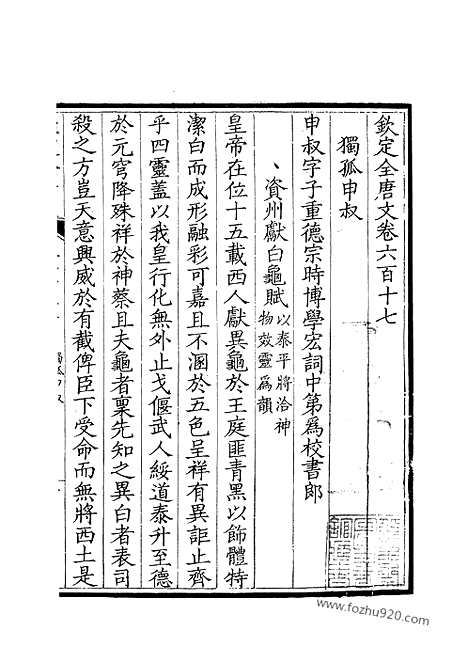 欽定全唐文卷六百十七
獨孤申叔
申叔字子重德宗時博學宏詞中第爲校書郎
資州獻白龜賦以泰平將洽神物效靈爲韻
皇帝在位十五載西人獻異龜於王庭匪青黑以飾體特
潔白而成形融彩可嘉且不溷於五色呈祥有異詎止齊
乎四靈蓋以我皇行化無外止戈偃武人綏道泰升至德
於元穹降殊祥於神蔡且夫龜者稟先知之異白者表司
殺之方豈天意興威於有截俾臣下受命而無將西土是
www.fozhu920.com